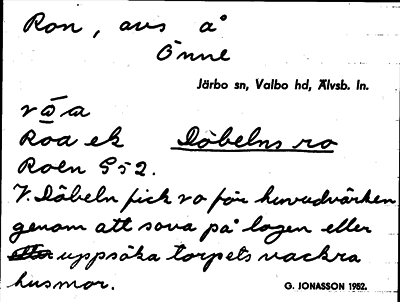 Ron, avs å
Önne
Järbo sn, Valbo hd, Älvsb. ln.
Roa ek Döbelns ro
Roen G 52.
V. Döbeln fick ro för huvudvärken
genom att sova på logen eller
uppsöka torpets vackra
husmor.
G. JONASSON 1952.